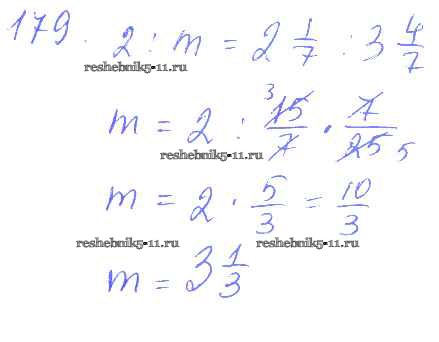 179. 2 : m = 2 1/7 : 3 4/7
reshebnik5-11.ru
m = 2 : 3 15/7 · 7/25 5
reshebnik5-11.ru
m = 2 · 5/3 = 10/3
reshebnik5-11.ru reshebnik5-11.ru
m = 3 1/3